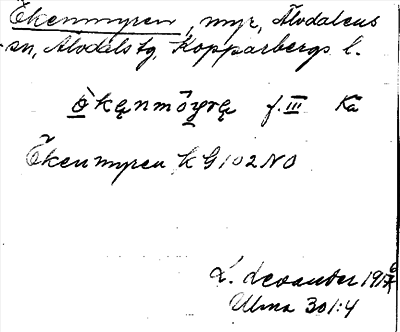 Ökenmyren, myr, Älvdalens
sn, Älvdals tg, Kopparbergs l.
f. III Ka
Ökenmyren k G 102 NO
L. Levander 1916
Ulma 301:4